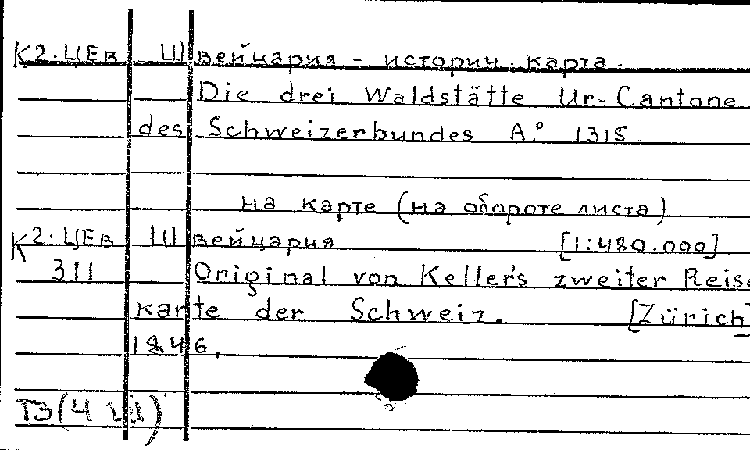 К2·ЦЕв Швейцария - историч. карта.
Die drei Waldstätte Ur-Cantone
des Schweizerbundes A.° 1315
на карте (на обороте листа)
К2·ЦЕв Швейцария [1:480.000]
311 Original von Keller's zweiter Reise
karte der Schweiz. [Zürich]
1846.